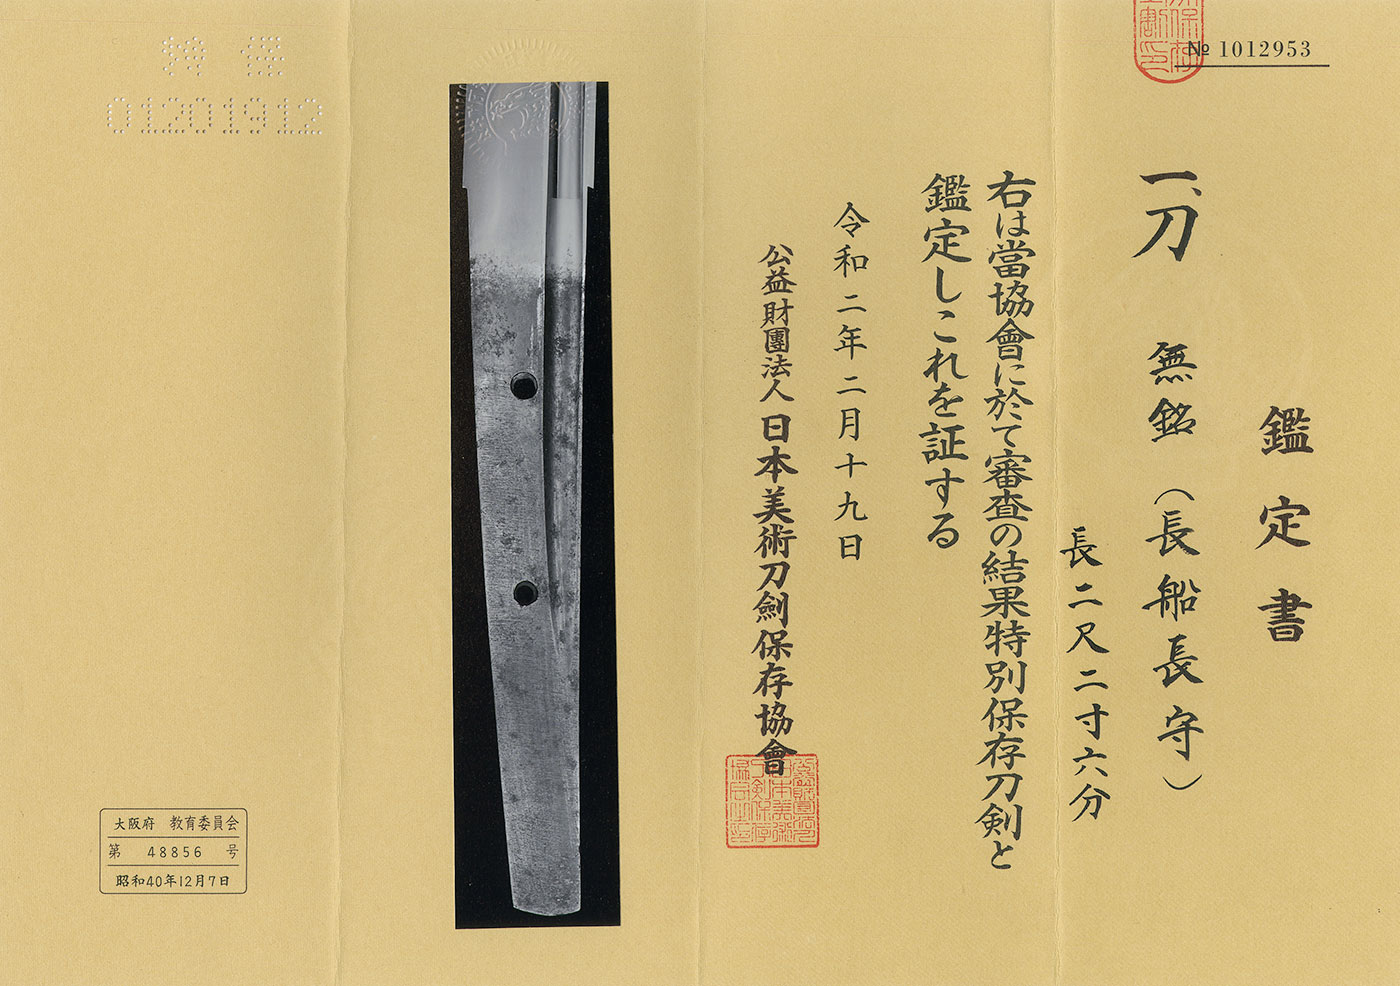 № 1012953
鑑定書
一、刀 無銘(長船長守)
長二尺二寸六分
右は當協會に於て審査の結果特別保存刀剣と
鑑定しこれを証する
令和二年二月十九日
公益財團法人 日本美術刀劍保存協會
特保
01201912
大阪府 教育委員会
第 48856 号
昭和40年12月7日